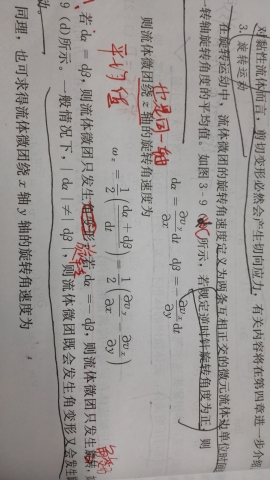 对黏性流体而言，剪切变形必然会产生切向应力，有关内容将在第四章进一步介绍
3. 旋转运动
在旋转运动中，流体微团的旋转角速度定义为两条互相正交的微元流体边单位时间
转轴旋转角度的平均值。如图 3-9 所示，若规定逆时针旋转角度为正，则
dα = ∂v_y/∂x dt　dβ = −∂v_x/∂y dt
也是同一轴
则流体微团绕 z 轴的旋转角速度为
平均值
ω_z = 1/2 (dα + dβ)/dt = 1/2 (∂v_y/∂x − ∂v_x/∂y)
若 dα = dβ，则流体微团只发生角变形；若 dα = −dβ，则流体微团只发生旋转，
旋转
角变形
9 (d)所示。一般情况下，| dα | ≠ | dβ |，则流体微团既会发生角变形又会发生
动。
同理，也可求得流体微团绕 x 轴 y 轴的旋转角速度为